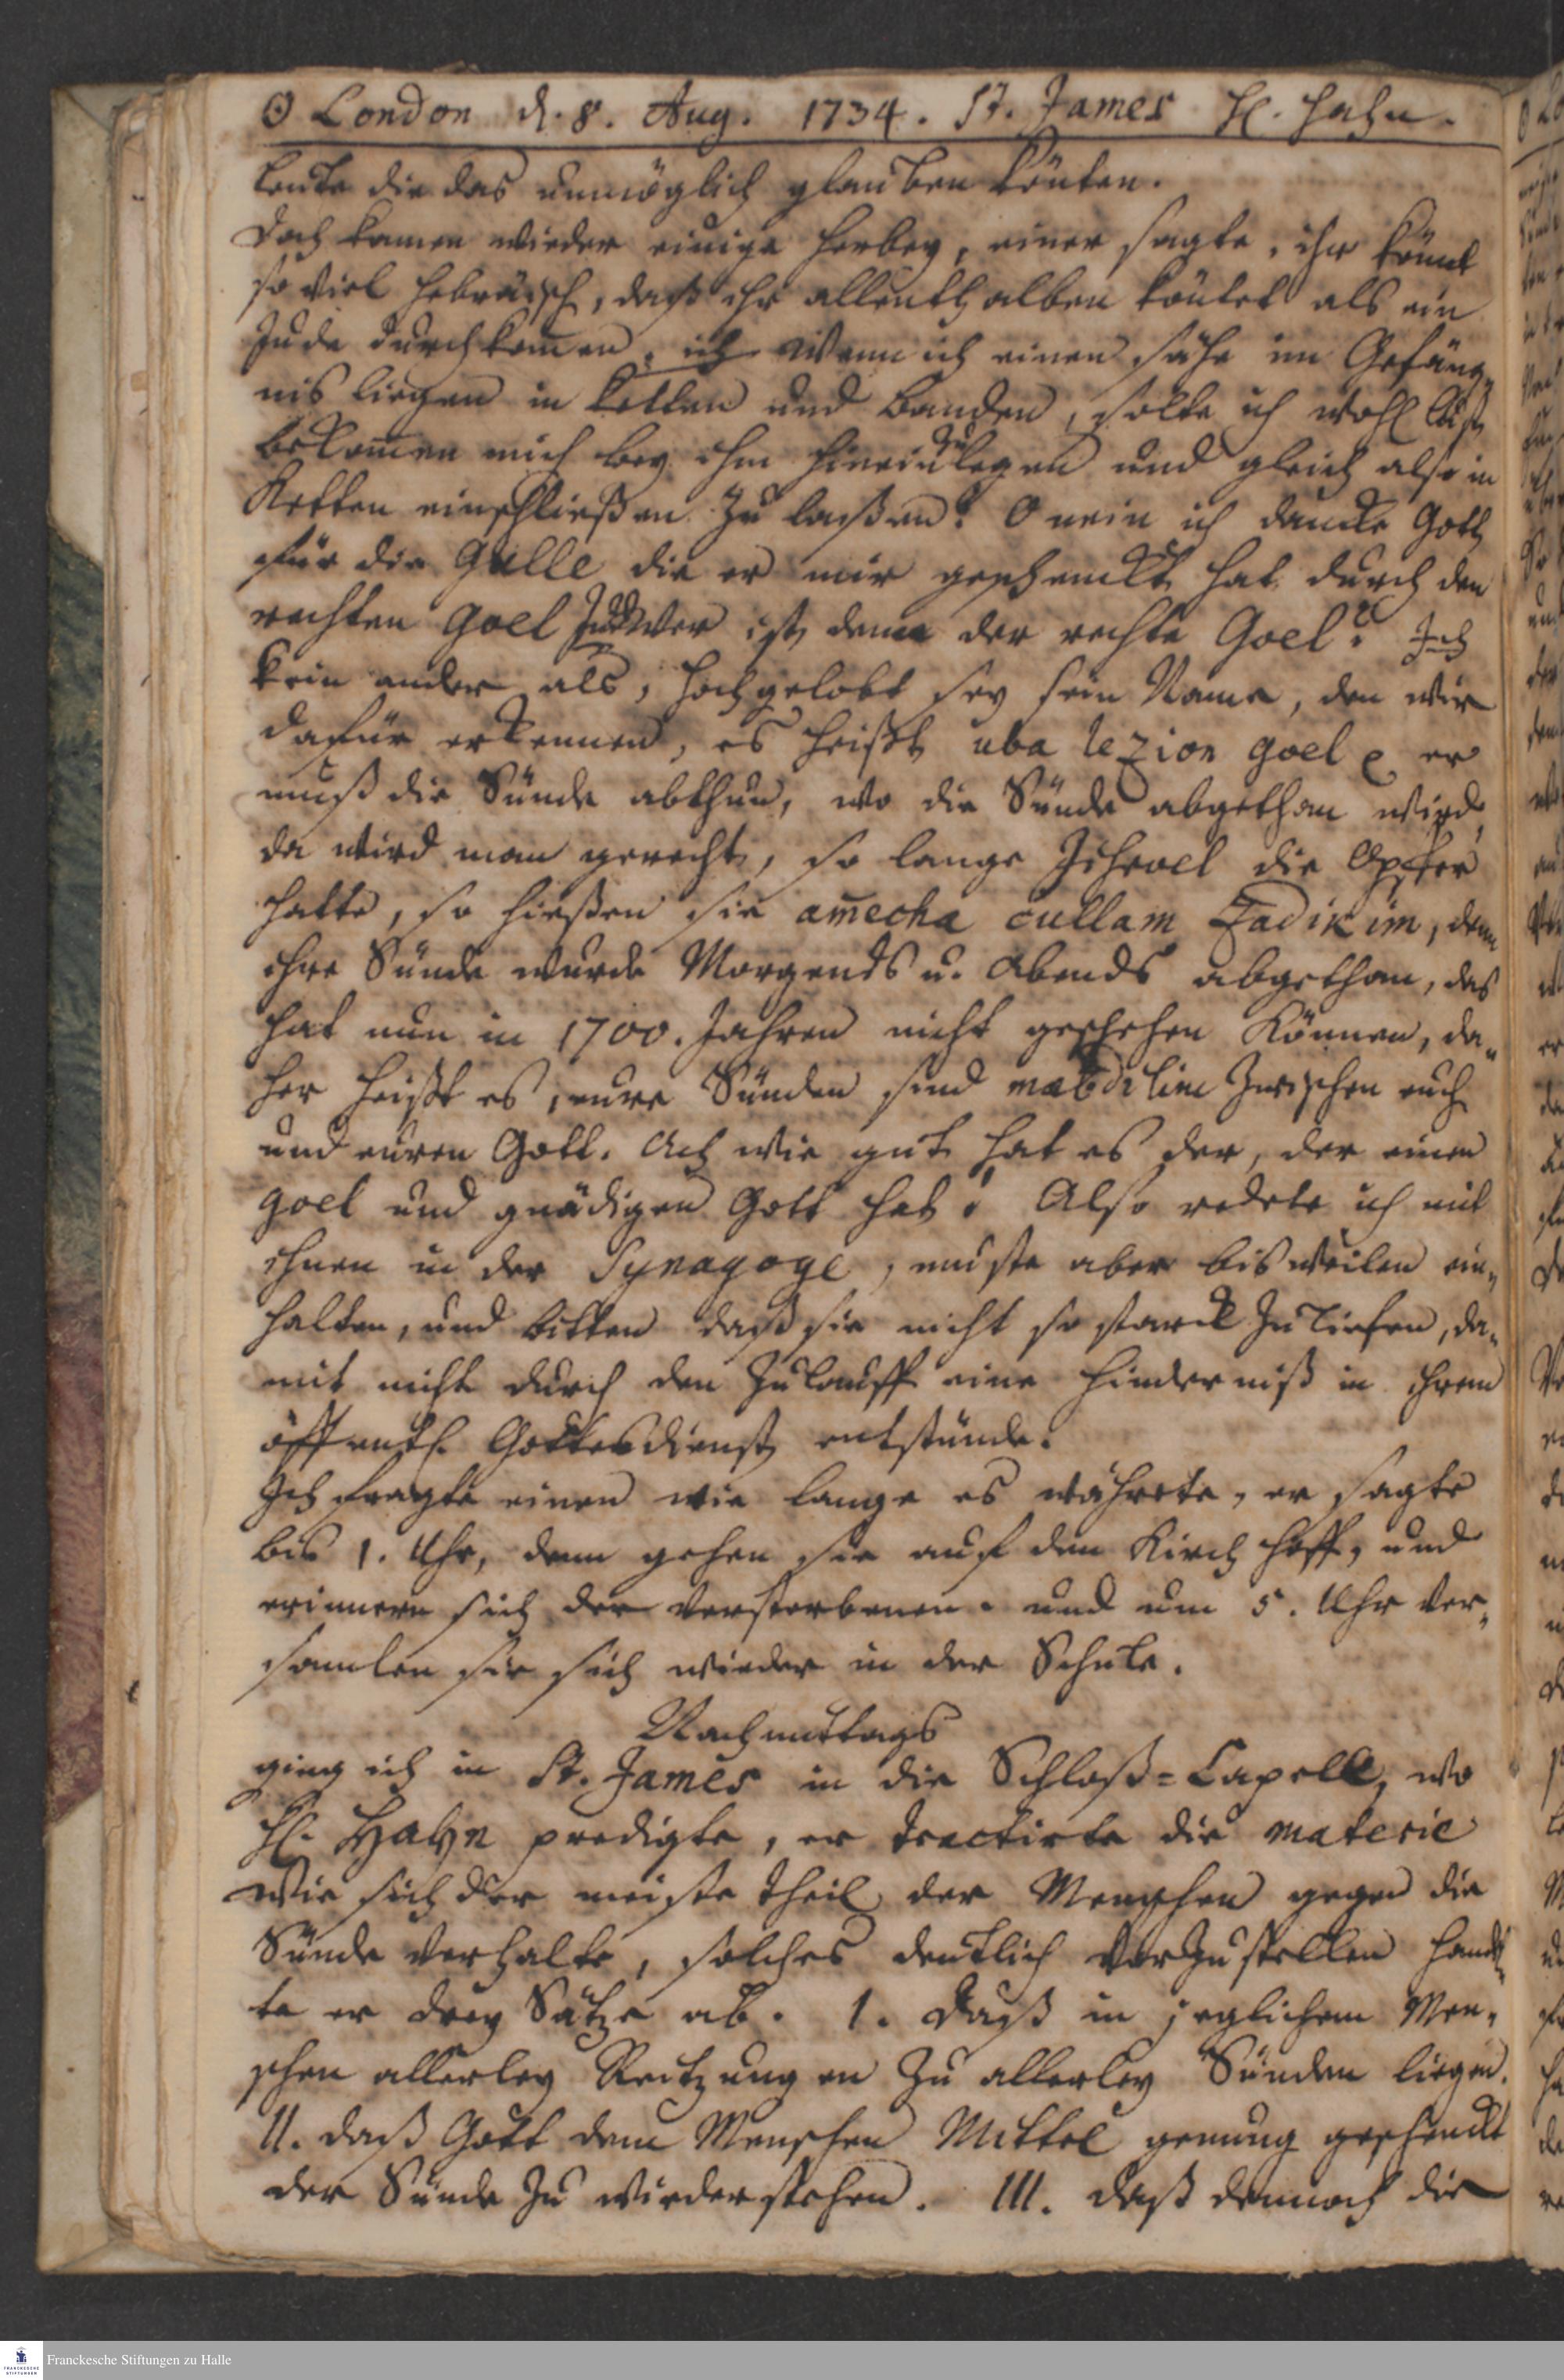 ☉ London d. 8. Aug. 1734. St. James H. Hahn.
Leute die das unmöglich glauben könten.
Doch kamen wieder einige herbey, einer sagte, ihr könnt
so viel Hebräisch, daß ihr allenthalben köntet als ein
Jude durchkom̅en. ich Wenn ich einen sähe im Gefäng„
nis liegen in Ketten und Banden, solte ich wohl Lust
bekom̅en mich bey ihm hineinzulegen und gleich also in
Ketten einschließen zu laßen? O nein ich dancke Gott
für die Gulle die er mir geschenckt hat durch den
rechten Goel Jud Wer ist denn der rechte Goel? Ich
kein ander als, hochgelobt sey sein Name, den wir
dafür erkennen, es heißt uba lezion goel er
muß die Sünde abthun, wo die Sünde abgethan wird,
da wird man gerecht, so lange Jisroel die Opfer
hatte, so hießen sie am̅echa cullam Zadikim, denn
ihre Sünde wurde Morgends u. Abends abgethan, das
hat nun in 1700. Jahren nicht geschehen können, da„
her heißt es, eure Sünden sind mabdilim zwischen euch
und euren Gott. Ach wie gut hat es der, der einen
goel und gnädigen Gott hat! Also redete ich mit
ihnen in der Synagoge, muste aber bisweilen ein„
halten, und bitten daß sie nicht so starck zuliefen, da„
mit nicht durch den Zulauff eine Hinderniß in ihrem
öffentl. Gottesdienst entstünde.
Ich fragte einen wie lange es währete, er sagte
bis 1. Uhr, denn gehen sie auf den Kirchhoff, und
erinnern sich der Verstorbenen. und um 5. Uhr ver„
samlen sie sich wieder in der Schule.
Nachmittags
ging ich in St. James in die Schloß=Capelle, wo
H. Hahn predigte, er tractirte die materie
wie sich der meiste Theil der Menschen gegen die
Sünde verhalte, solches deutlich vorzustellen handel„
te er drey Sätze ab. 1. Daß in jeglichem Men„
schen allerley Reitzungen zu allerley Sünden liegen.
II. daß Gott dem Menschen Mittel genung geschenckt
der Sünde zu wiederstehen. III. daß dennoch die
Franckesche Stiftungen zu Halle